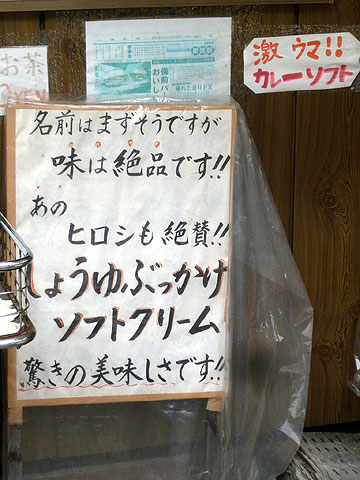 お茶
備前バー
おいし
激ウマ!!
カレーソフト
名前はまずそうですが
味は絶品です!!
あの
ヒロシも絶賛!!
しょうゆぶっかけ
ソフトクリーム
驚きの美味しさです!!